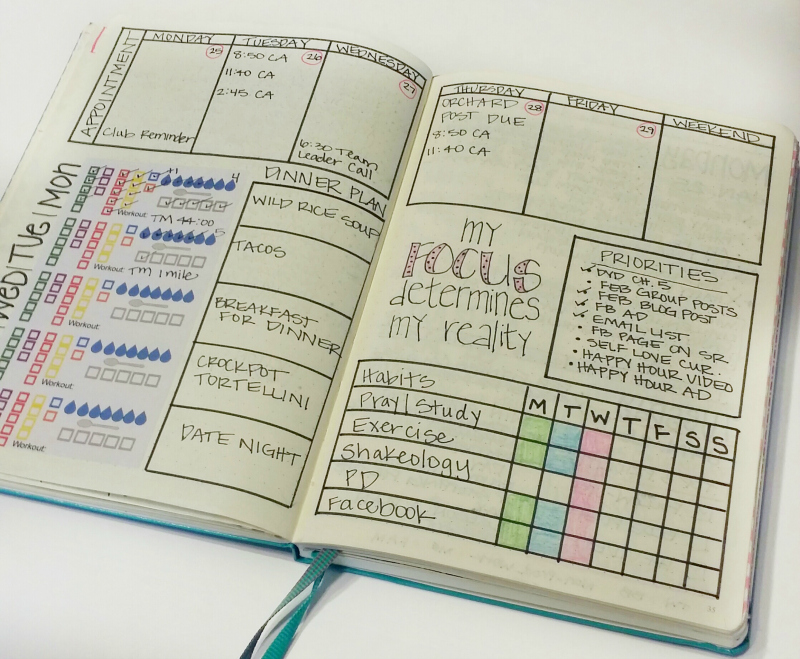 APPOINTMENT
MONDAY
25
Club Reminder
TUESDAY
26
8:50 CA
11:40 CA
2:45 CA
WEDNESDAY
27
6:30 Team
Leader Call
Mon
Tue
Wed
Workout
TM 44:00
4
Workout
TM 1 mile
5
Workout
Workout
Workout
DINNER PLAN
WILD RICE SOUP
TACOS
BREAKFAST
FOR DINNER
CROCKPOT
TORTELLINI
DATE NIGHT
THURSDAY
28
ORCHARD
POST DUE
8:50 CA
11:40 CA
FRIDAY
29
WEEKEND
MY
FOCUS
determines
my reality
PRIORITIES
DVD CH. 5
FEB GROUP POSTS
FEB BLOG POST
FB AD
EMAIL LIST
FB PAGE ON SR.
SELF LOVE CUR.
HAPPY HOUR VIDEO
HAPPY HOUR AD
Habits
M T W T F S S
Pray/Study
Exercise
Shakeology
PD
Facebook